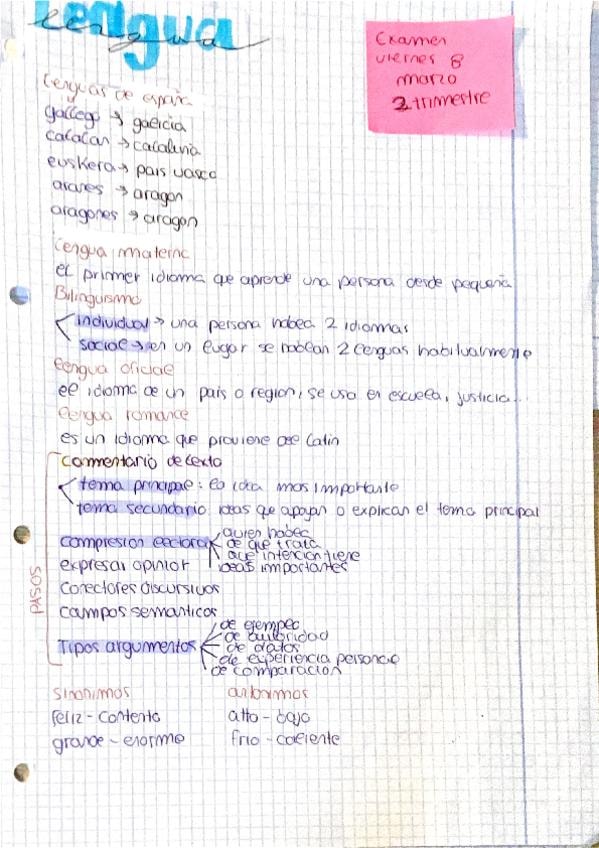 Lengua
Examen
viernes 8
marzo
2 trimestre
Lenguas de españa
gallego → galicia
catalan → cataluña
euskera → pais vasco
aranes → aragon
aragones → aragon
Lengua materna
el primer idioma que aprende una persona desde pequeña
Bilinguismo
individual → una persona habla 2 idiomas
social → en un lugar se hablan 2 lenguas habitualmente
lengua oficial
el idioma de un pais o region, se usa en escuela, justicia...
lengua romance
es un idioma que proviene del latin
PASOS
commentario de texto
tema principal: la idea mas importante
tema secundario: ideas que apoyan o explican el tema principal
compresion lectora
quien habla
de que trata
que intencion tiene
ideas importantes
expresar opinion
Conectores discursivos
campos semanticos
Tipos argumentos
de ejemplo
de autoridad
de datos
de experiencia personal
de comparacion
sinonimos antonimos
feliz - contento alto - bajo
grande - enorme frio - caliente